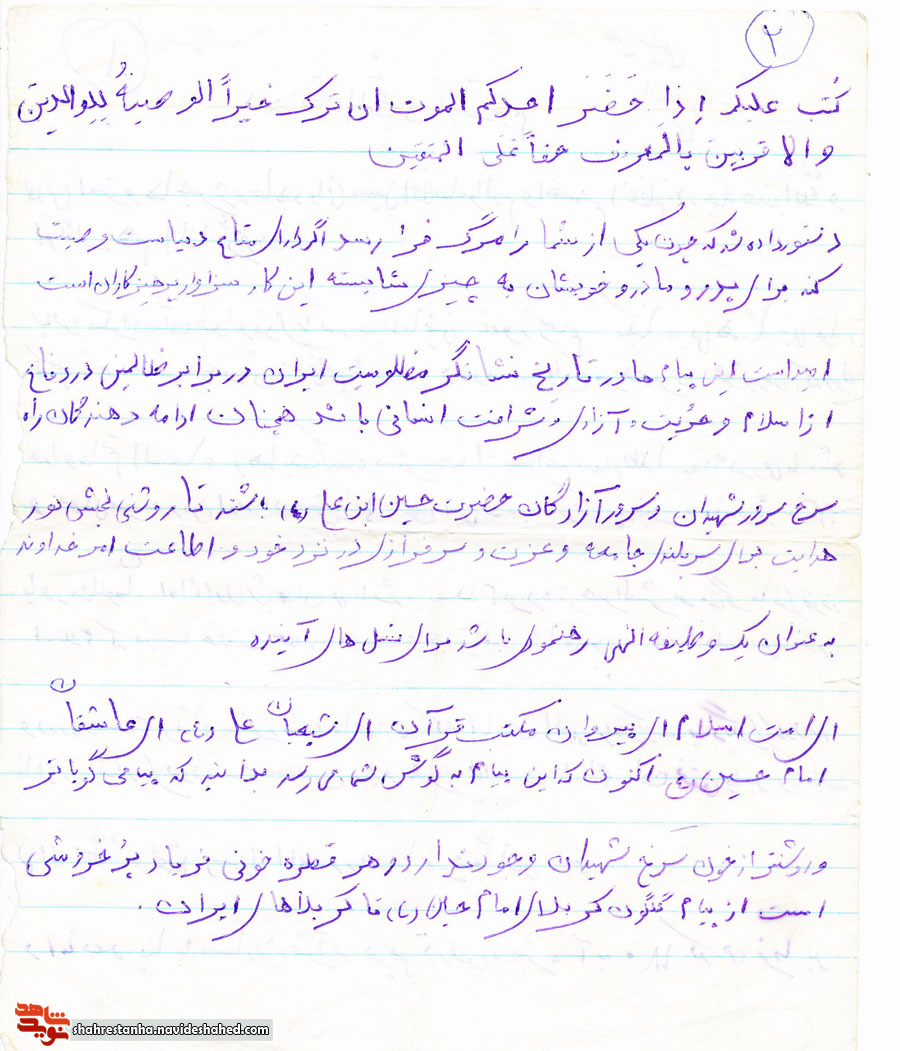 ۲
کُتِب علیکم اِذا حَضَرَ احدکم الموت ان ترک خیراً الوصیةُ لِلوالدین
والاقربین بالمعروف حقاً عَلَی المتقین
دستور داده شد که چون یکی از شما را مرگ فرا رسد اگر دارای متاع دنیاست وصیت
کند برای پدر و مادر و خویشان به چیزی شایسته این کار سزاوار پرهیزکاران است
امیداست این پیام ها در تاریخ نشانگر مظلومیت ایران در برابر ظالمین در دفاع
از اسلام و حُرّیت و آزادی و شرافت انسانی باشد همچنان ادامه دهندگان راه
سرخ سرور شهیدان و سرور آزادگان حضرت حسین ابن علی (ع) باشند تا روشنی بخش نور
هدایت برای سربلندی جامعه و عزت و سرفرازی در نزد خود و اطاعت امر خداوند
به عنوان یک وظیفه الهی رهنمودی باشد برای نسل های آینده
ای امت اسلام ای پیروان مکتب قرآن ای شیعیان علی (ع) ای عاشقان
امام حسین (ع) اکنون که این پیام به گوش شما می رسد بدانید که پیامی گویاتر
و رساتر از خون سرخ شهیدان وجود ندارد و هر قطره خونی فریاد پرُ خروشی
است از پیام گلگون کربلای امام حسین (ع) تا کربلاهای ایران .
نوید شاهد
shahrestanha.navideshahed.com